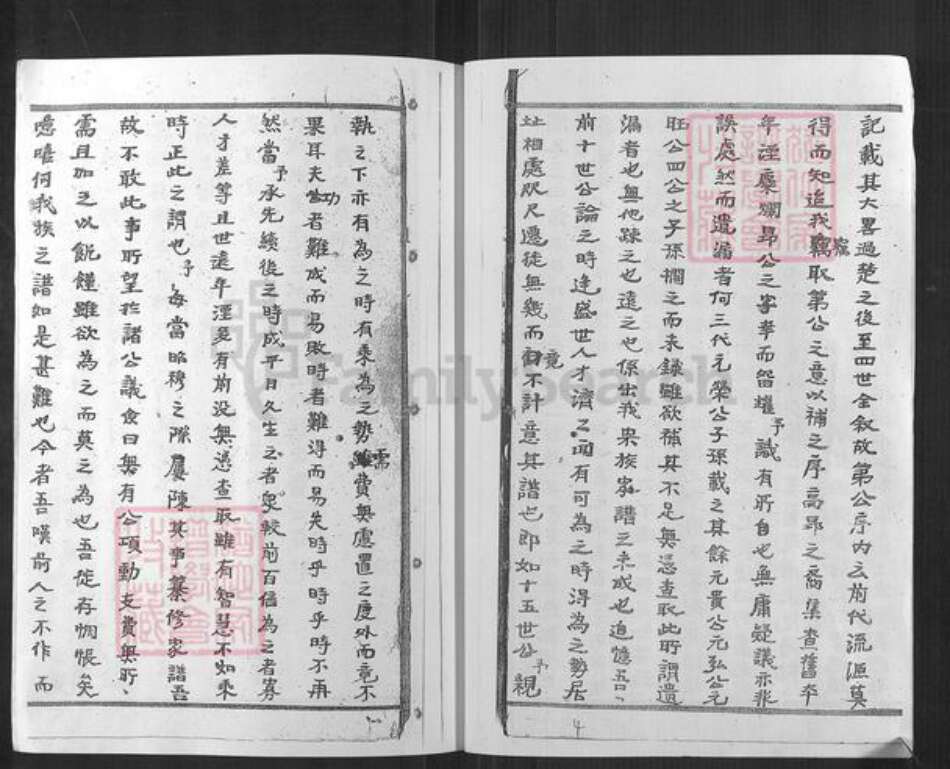 記載其大畧過楚之後至四世全叙故第公序內云前代流源莫
得而知迨我竊取第公之意以補之序高昇之裔集查舊卒
年湮槀爛昴公之字率而昝耀予識有所自也無庸疑議亦非
誤處然而遺漏者何三代元榮公子孫載之其餘元貴公元弘公元
旺公四公之子孫擱之而未錄雖欲補其不足無憑查取此所謂遺
漏者也無他踈之也遠之也係出我宋族家譜之未成也追憶吾、
前十世公論之時逢盛世人才濟之間有可為之時得為之勢居
址相處咫尺遷徒無幾而竟不計意其譜也即如十五世公予親
執之下亦有為之時有乘為之勢需費無處置之度外而竟不
果耳夫功者難成而易敗時者難得而易失時乎時乎時不再
然當予承先續後之時成平日久生之者衆較前百倍為之者寡
人才差等且世遠年湮多有前没無憑查取雖有智慧不如乘
時正此之謂也予每當昭穆之際屢陳其事纂修家譜吾
故不敢此事所望於諸公議僉曰無有公項動支費無所、
需且加之以飢饉雖欲為之而莫之為也吾徒存惆悵矣
噫嘻何我族之譜如是甚難也今者吾嘆前人之不作而
FamilySearch
4